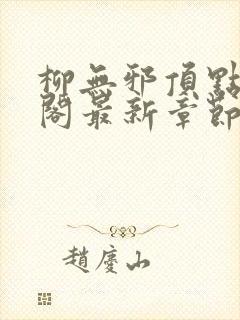 柳無邪頂點
閣最新章節
趙慶山